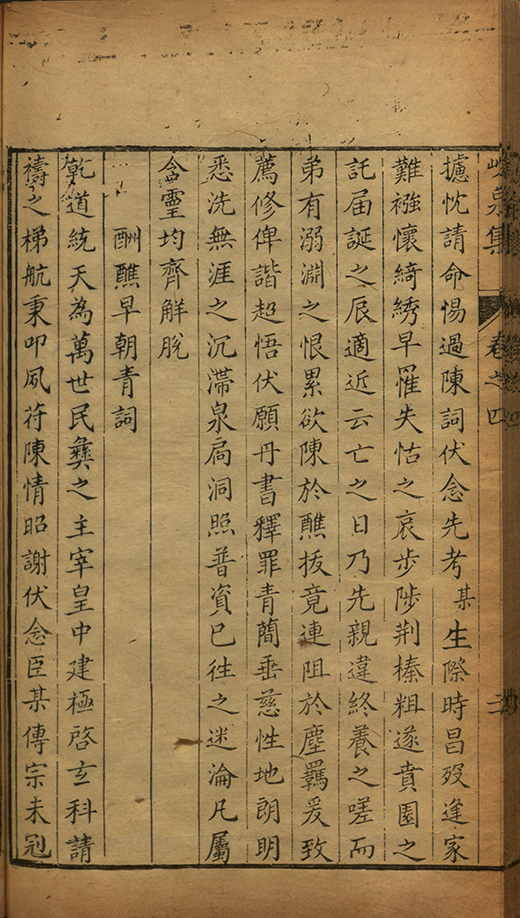 峴泉集 卷之四
攄忱請命惕過陳詞伏念先考某生際時昌歿逢家
難襁懷綺綉早罹失怙之哀步陟荆榛粗遂賁園之
託届誕之辰適近云亡之日乃先親違終養之嗟而
弟有溺淵之恨累欲陳於醮拔竟連阻於塵羈爰致
薦修俾諧超悟伏願丹書釋罪青簡垂慈性地朗明
悉洗無涯之沉滯泉扃洞照普資已徃之迷淪凡屬
含靈均齊解脫
酬醮早朝青詞
乾道統天為萬世民彝之主宰皇中建極啓玄科請
禱之梯航秉叩夙符陳情昭謝伏念臣某傳宗未冠